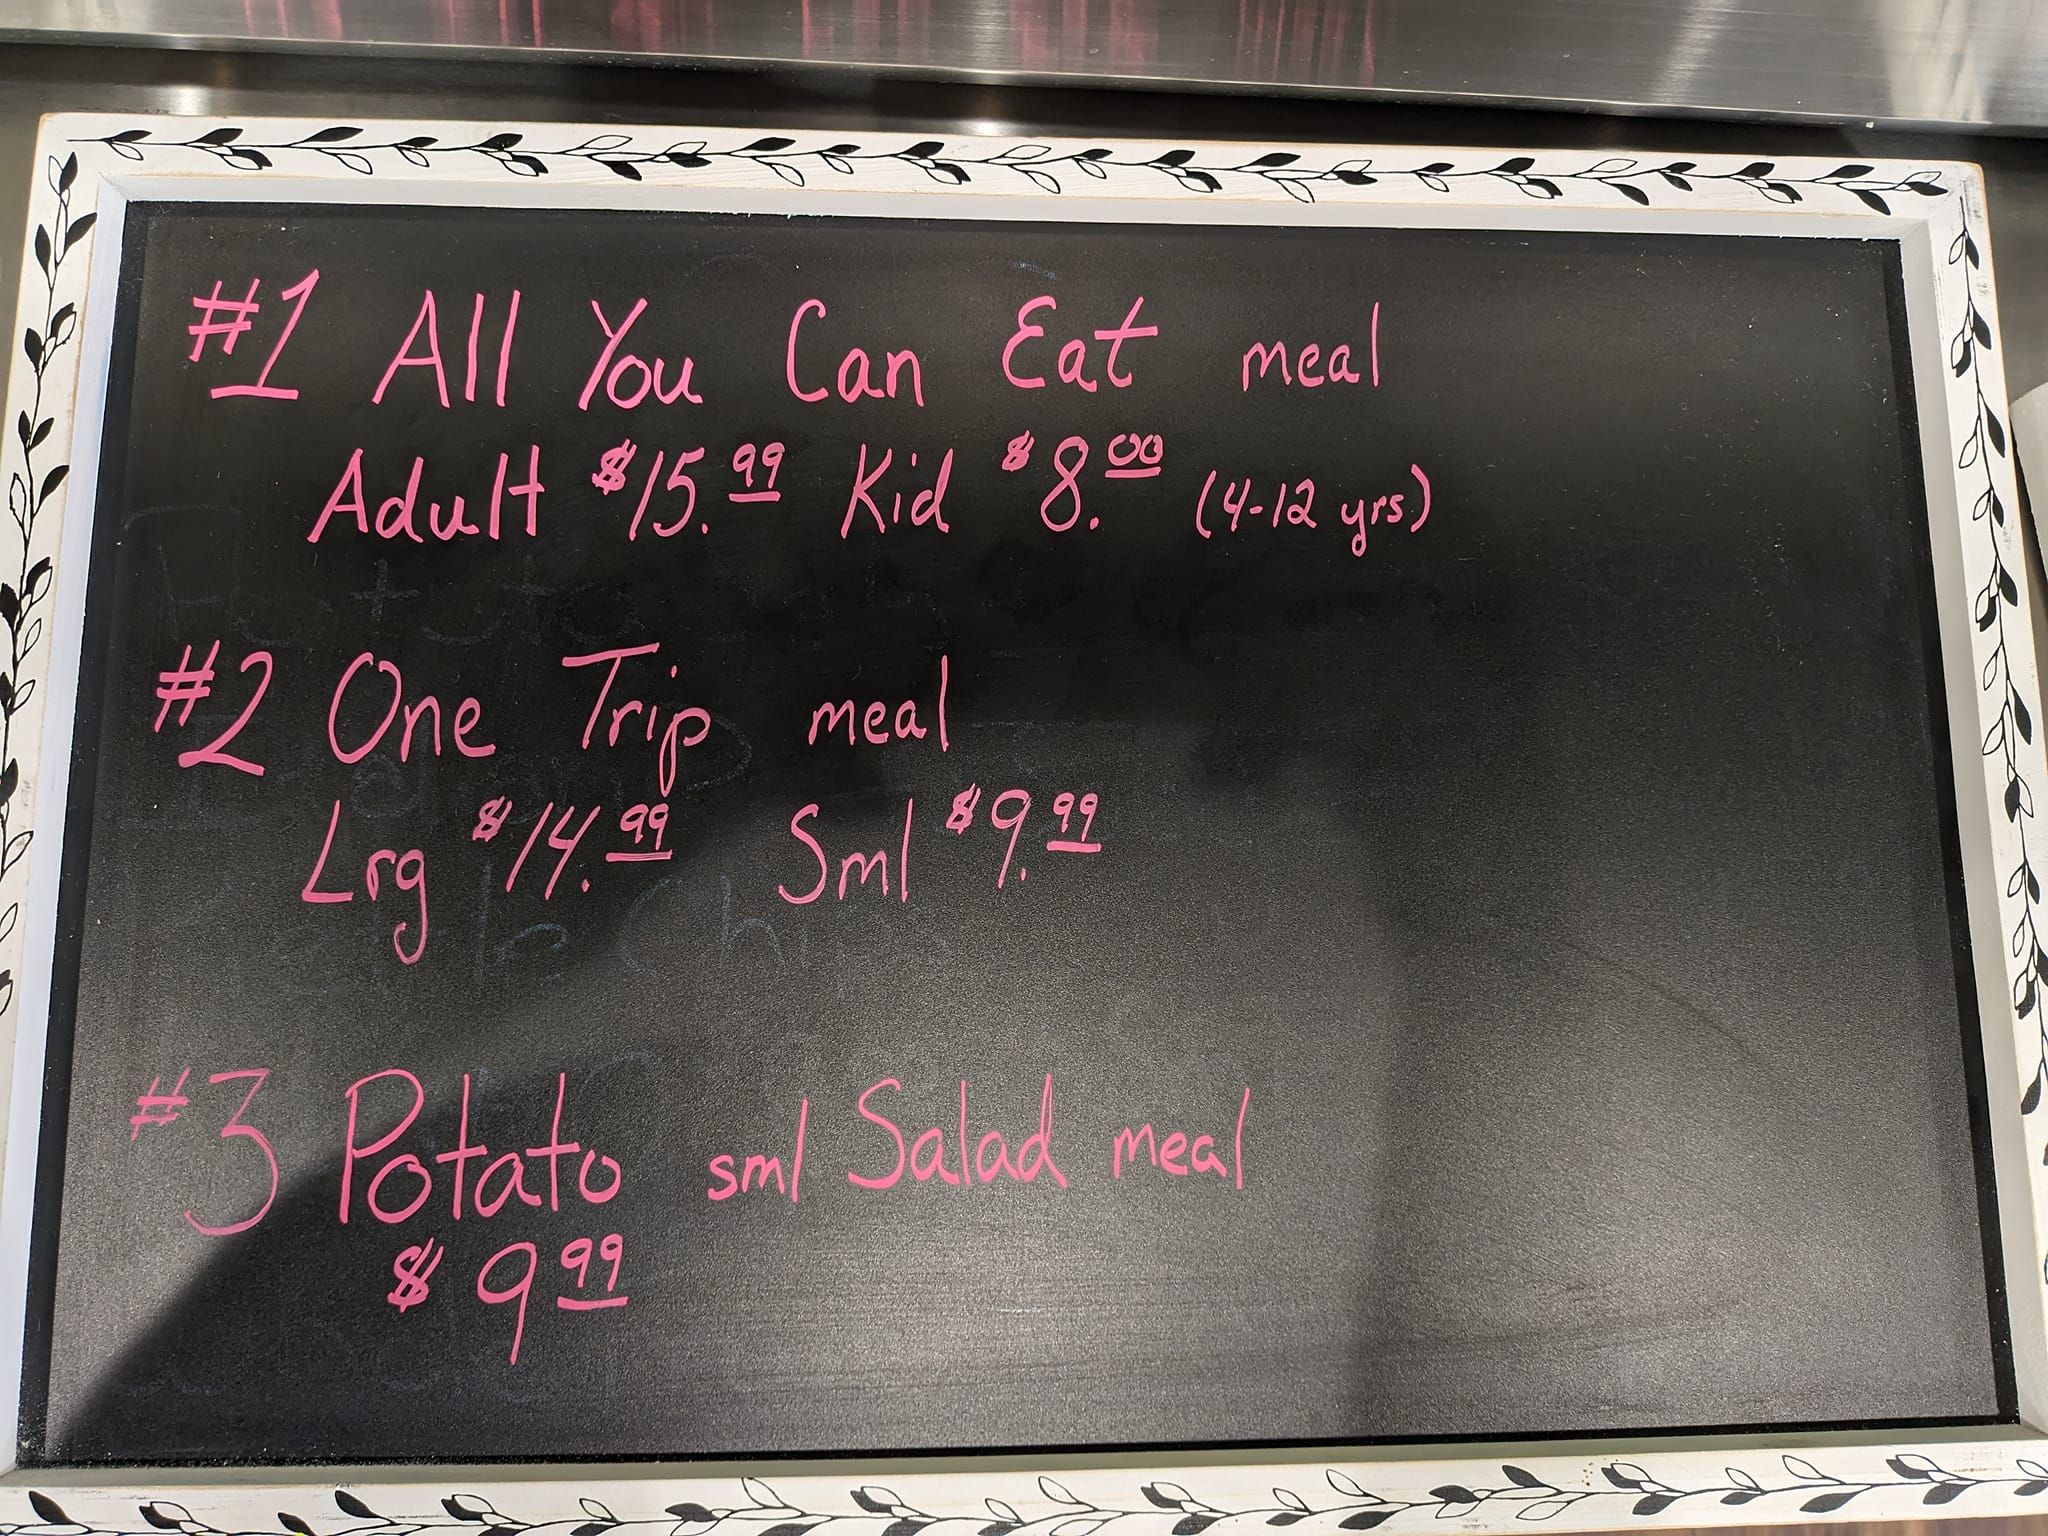 #1 All You Can Eat meal
Adult $15.99 Kid $8.00 (4-12 yrs)
#2 One Trip meal
Lrg $14.99 Sml $9.99
Chips
#3 Potato sml Salad meal
$9 99